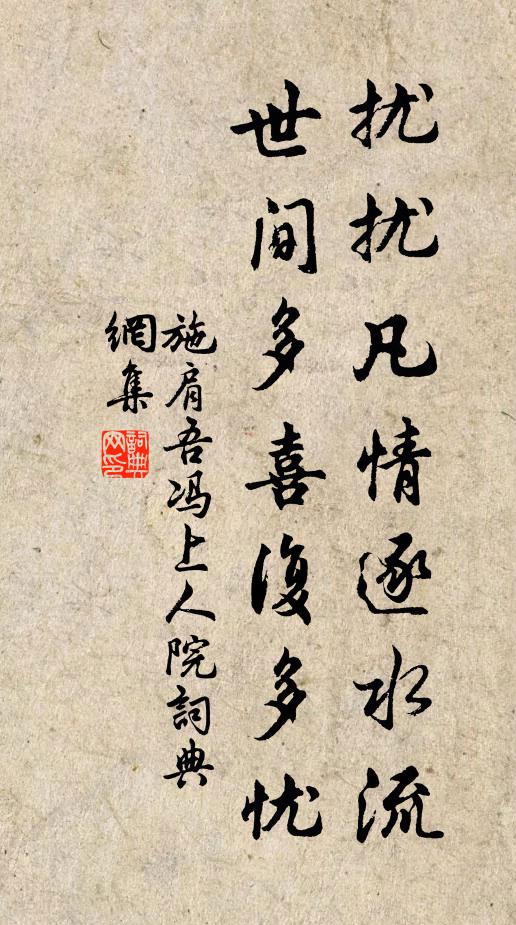 扰扰凡情逐水流
世间多喜復多忧
施肩吾冯上人院詞典
網集
詞典網印